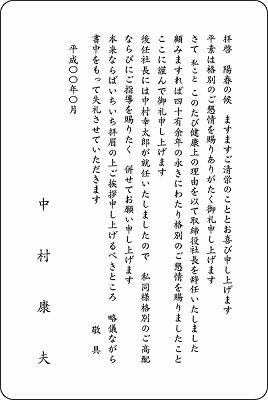 拝啓　陽春の候　ますますご清栄のこととお喜び申し上げます
平素は格別のご懇情を賜りありがたく御礼申し上げます
さて 私こと このたび健康上の理由を以て取締役社長を辞任いたしました
顧みますれば四十有余年の永きにわたり格別のご懇情を賜りましたこと
ここに謹んで御礼申し上げます
後任社長には中村幸太郎が就任いたしましたので　私同様格別のご高配
ならびにご指導を賜りたく　併せてお願い申し上げます
本来ならばいちいち拝眉の上ご挨拶申し上げるべきところ　略儀ながら
書中をもって失礼させていただきます　　敬具
平成〇〇年〇月
中村康夫